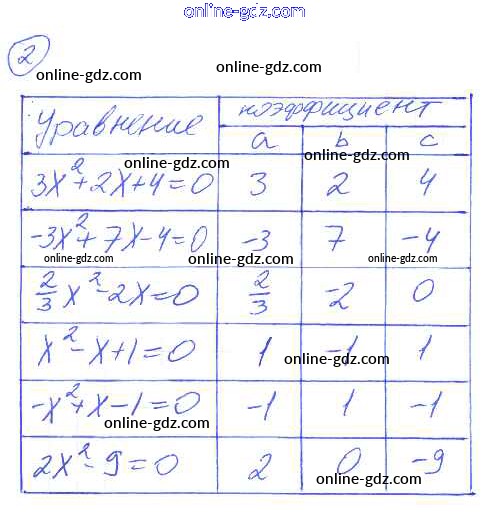 online-gdz.com
2
online-gdz.com
online-gdz.com
Уравнение коэффициент
online-gdz.com
a b c
online-gdz.com
3x²+2x+4=0 3 2 4
online-gdz.com
-3x²+7x-4=0 -3 7 -4
online-gdz.com
online-gdz.com
2/3 x²-2x=0 2/3 -2 0
online-gdz.com
x²-x+1=0 1 -1 1
online-gdz.com
-x²+x-1=0 -1 1 -1
online-gdz.com
2x²-9=0 2 0 -9
online-gdz.com